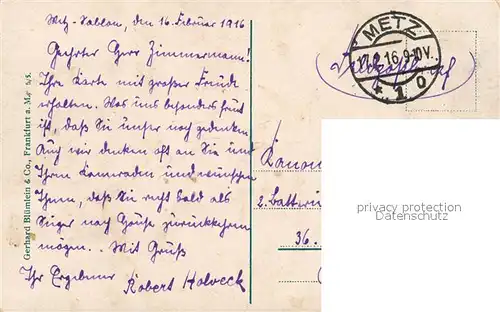 Metz-Sablon, den 16. Februar 1916
Geehrter Herr Zimmermann!
Ihre Karte mit großer Freude
erhalten. Was uns besonders freut
ist, daß Sie unser noch gedenken
Auch wir denken oft an Sie und
Ihren Kameraden und wünschen
Ihnen, daß Sie recht bald als
Sieger nach Hause zurückkehren
mögen. Mit Gruß
Ihr Ergebener Robert Holveck
Gerhard Blümlein & Co., Frankfurt a. M.
METZ
2.16.9-10V.
* 1 0
Kanon
2. Batterie
36.
privacy protection
Datenschutz